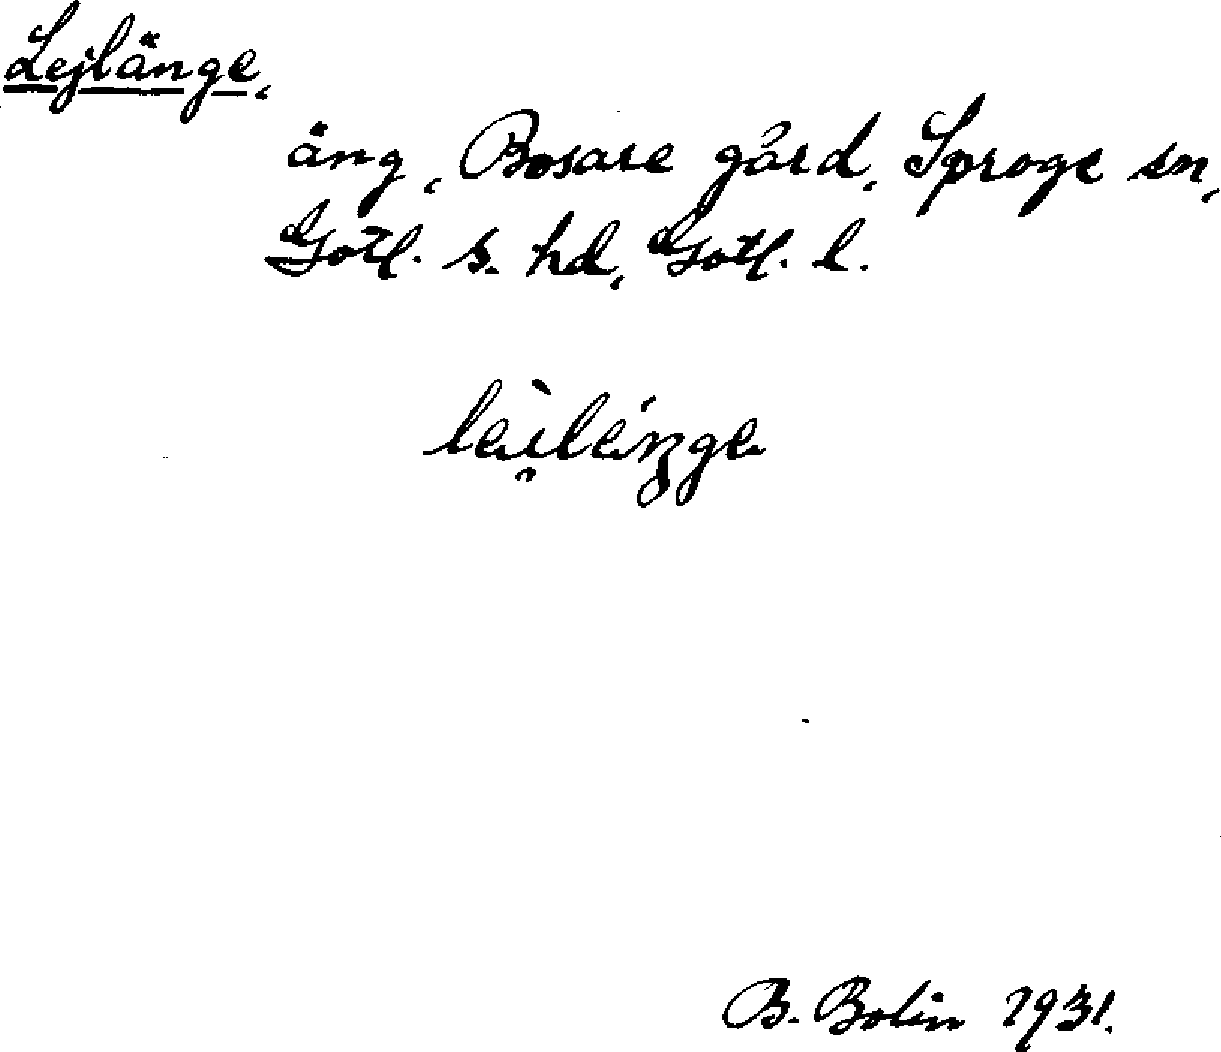 Lejlänge,
äng, Bosare gård, Sproge sn,
Gotl. s. hd, Gotl. l.
lèi̯léŋge
B. Bolin 1931.